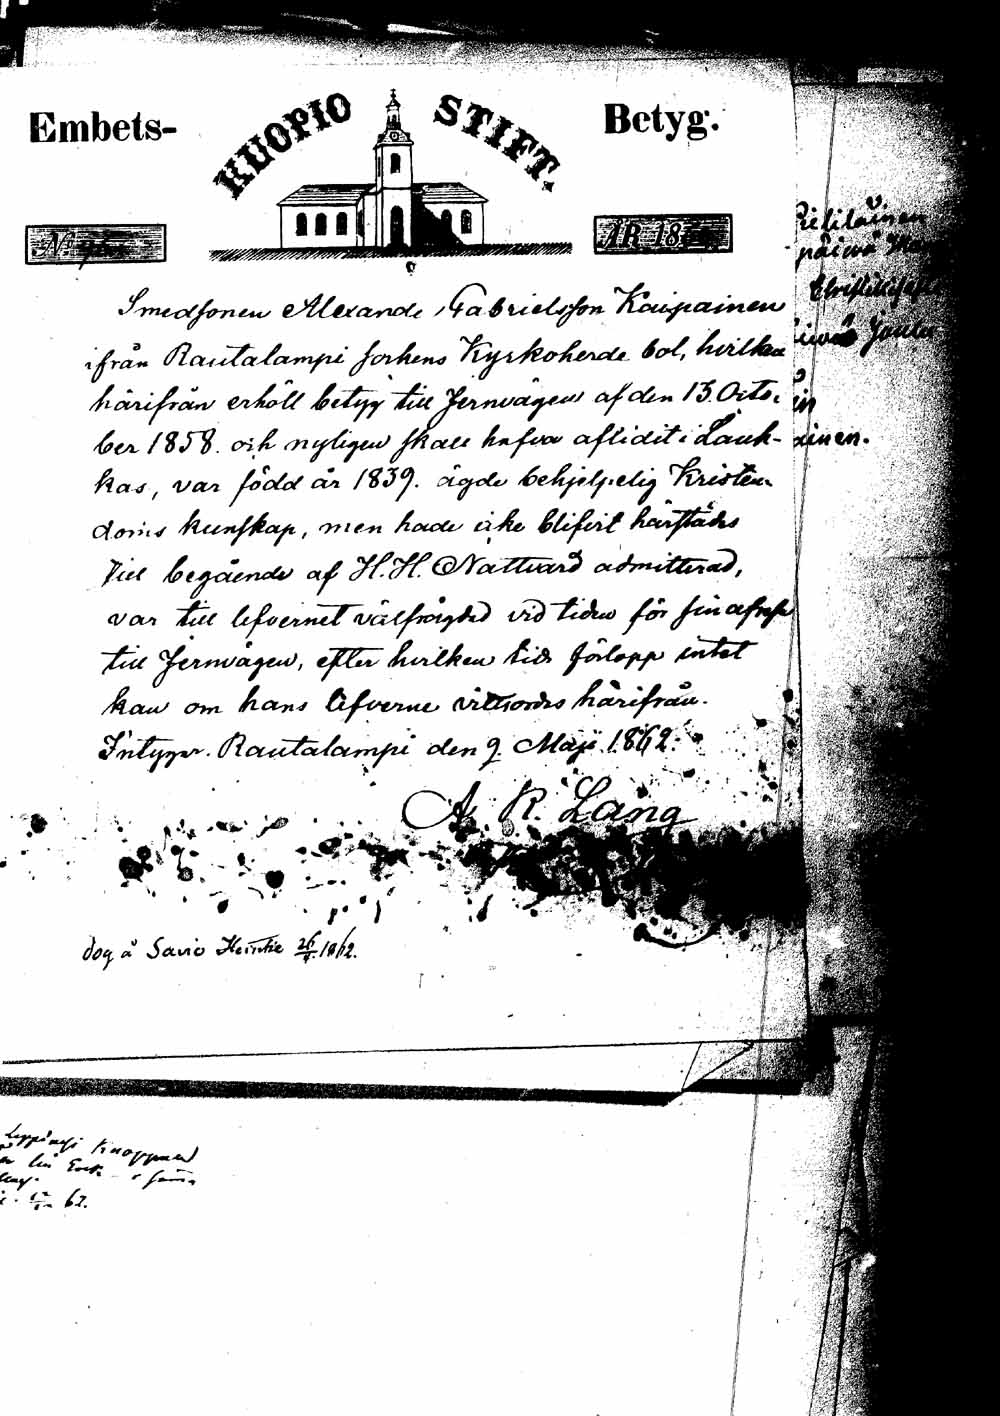 Embets- KUOPIO STIFT. Betyg.
No. ÅR 18
Smedsonen Alexander Gabrielsson Kaipainen
ifrån Rautalampi sockens Kyrkoherde bol, hvilken
härifrån erhöll betyg till Jernvägen af den 13. Octo-
ber 1858. och nyligen skall hafva aflidit i Lauk-
kas, var född år 1839. ägde behjelpelig Kristen-
doms kunskap, men hade icke blifvit härstädes
till begående af H.H. Nattvard admitterad,
var till lefvernet välfrägdad vid tiden för sin afresa
till Jernvägen, efter hvilken tids förlopp intet
kan om hans lefverne vittsordas härifrån.
Intygar. Rautalampi den 9 Maji 1862.
A. R. Lang
dog å Savio 26/4 1862.
päivä
Joulu
ainen.
62.